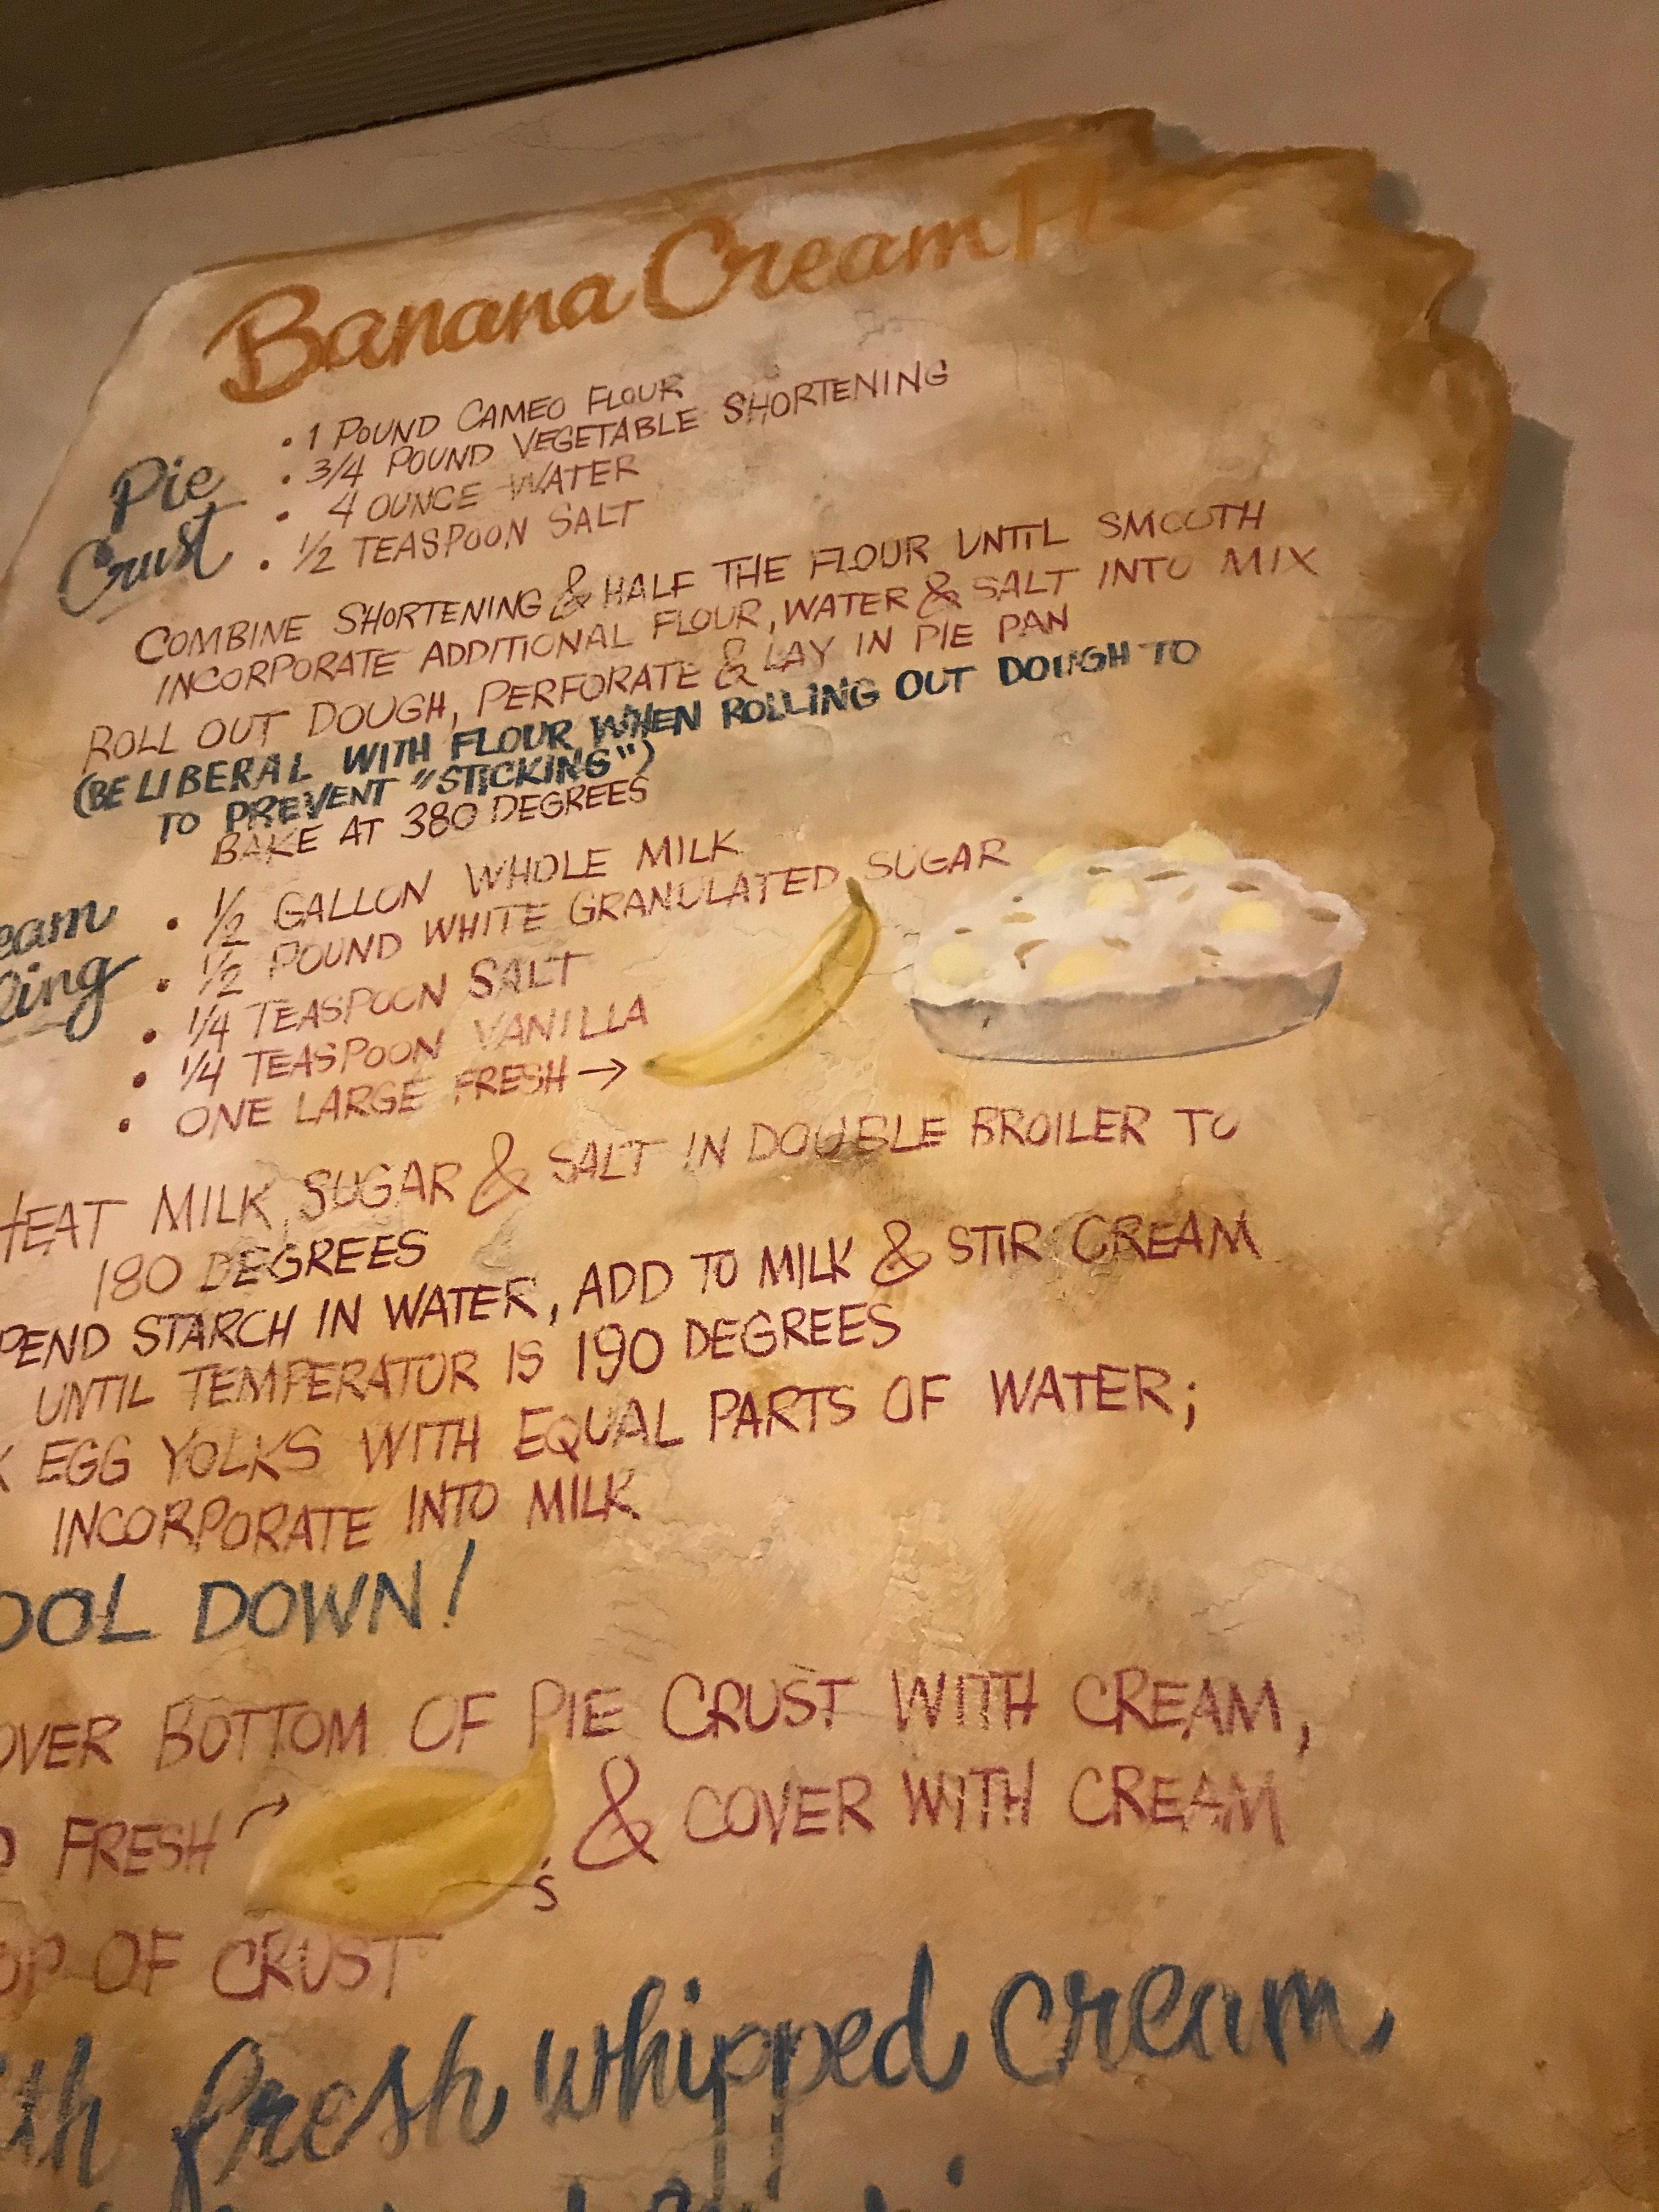 Banana Cream
Pie Crust
• 1 POUND CAMEO FLOUR
• 3/4 POUND VEGETABLE SHORTENING
• 4 OUNCE WATER
• 1/2 TEASPOON SALT
COMBINE SHORTENING & HALF THE FLOUR UNTIL SMOOTH
INCORPORATE ADDITIONAL FLOUR, WATER & SALT INTO MIX
ROLL OUT DOUGH, PERFORATE & LAY IN PIE PAN
(BE LIBERAL WITH FLOUR WHEN ROLLING OUT DOUGH TO
TO PREVENT "STICKING")
BAKE AT 380 DEGREES
eam
ling
• 1/2 GALLON WHOLE MILK
• 1/2 POUND WHITE GRANULATED SUGAR
• 1/4 TEASPOON SALT
• 1/4 TEASPOON VANILLA
• ONE LARGE FRESH →
HEAT MILK, SUGAR & SALT IN DOUBLE BROILER TO
180 DEGREES
PEND STARCH IN WATER, ADD TO MILK & STIR CREAM
UNTIL TEMPERATUR IS 190 DEGREES
EGG YOLKS WITH EQUAL PARTS OF WATER;
INCORPORATE INTO MILK
OOL DOWN!
OVER BOTTOM OF PIE CRUST WITH CREAM,
FRESH → 's & COVER WITH CREAM
OP OF CRUST
ith fresh whipped cream